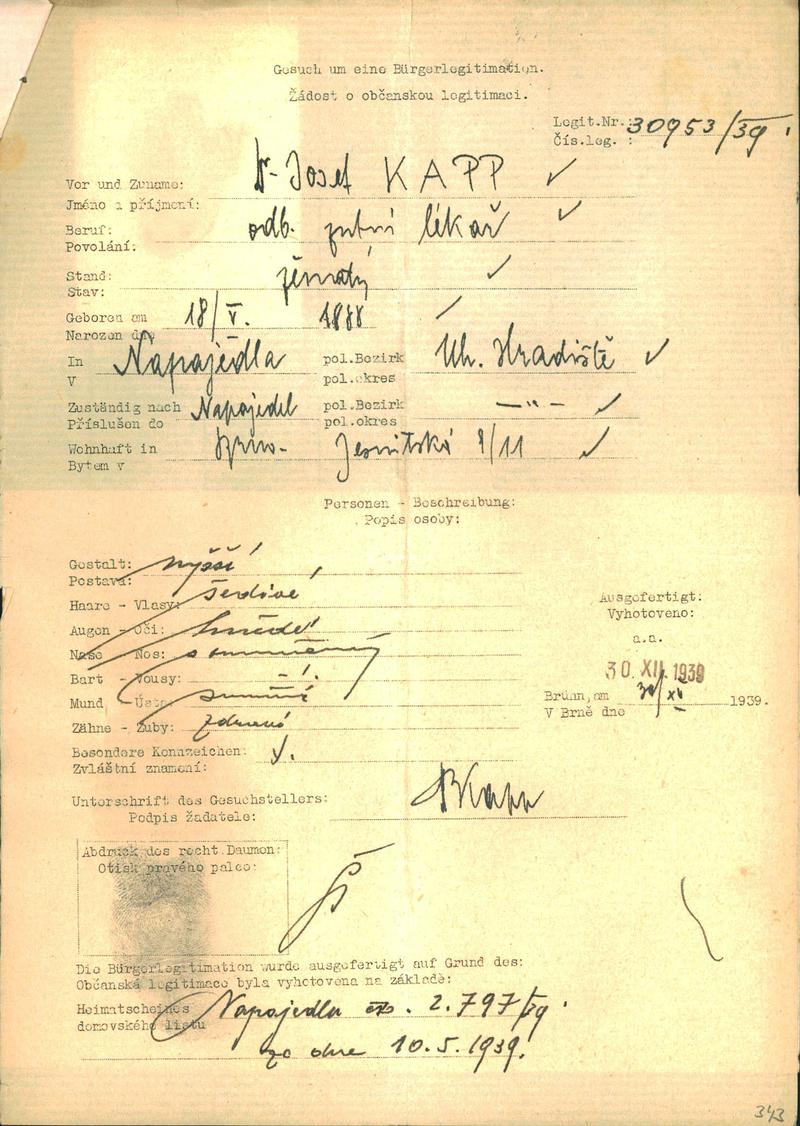 Gesuch um eine Bürgerlegitimation.
Žádost o občanskou legitimaci.
Legit.Nr.: 30953/39
Čís.leg. :
Vor und Zuname: Dr Josef KAPP
Jméno a příjmení:
Beruf: odb. zubní lékař
Povolání:
Stand: ženatý
Stav:
Geboren am 18/V. 1888
Narozen dne
In Napajedla pol.Bezirk Uh. Hradiště
V pol.okres
Zuständig nach Napajedel pol.Bezirk —"—
Příslušen do pol.okres
Wohnhaft in Brno- Jesuitská 9/11
Bytem v
Personen - Beschreibung:
Popis osoby:
Gestalt: vyšší
Postava:
Haare - Vlasy: šedivé
Augen - Oči: hnědé
Nase - Nos: souměrný
Bart - Vousy: -
Mund - Ústa: souměrná
Zähne - Zuby: zdravé
Besondere Kennzeichen:
Zvláštní znamení:
Ausgefertigt:
Vyhotoveno:
a.a.
30. XII. 1939
Brünn, am 30/XI 1939.
V Brně dne
Unterschrift des Gesuchstellers: Kapp
Podpis žadatele:
Abdruck des recht.Daumen:
Otisk pravého palce:
Die Bürgerlegitimation wurde ausgefertigt auf Grund des:
Občanská legitimace byla vyhotovena na základě:
Heimatscheines Napajedla čs. 2.797/39
domovského listu
ze dne 10.5.1939.
343